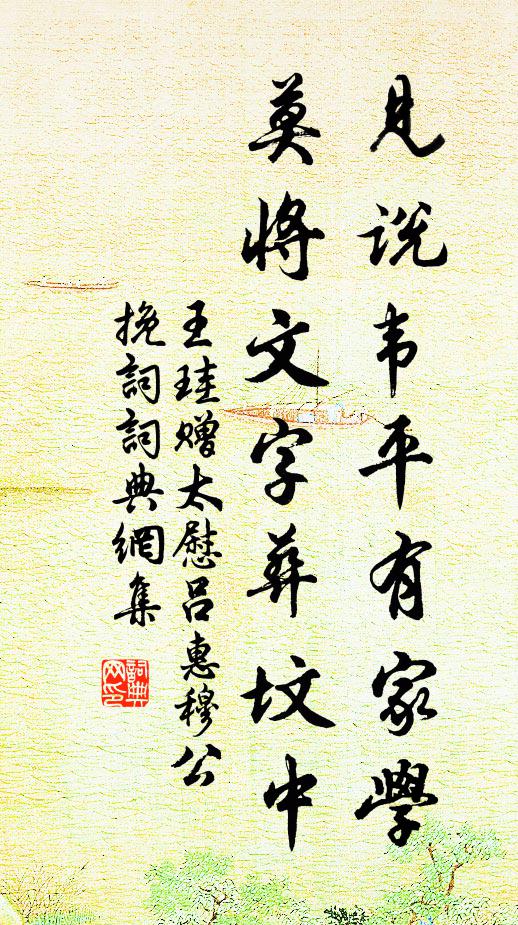 见说韦平有家學
莫将文字葬坟中
王珪赠太慰吕惠穆公
挽詞詞典網集
詞典
网印